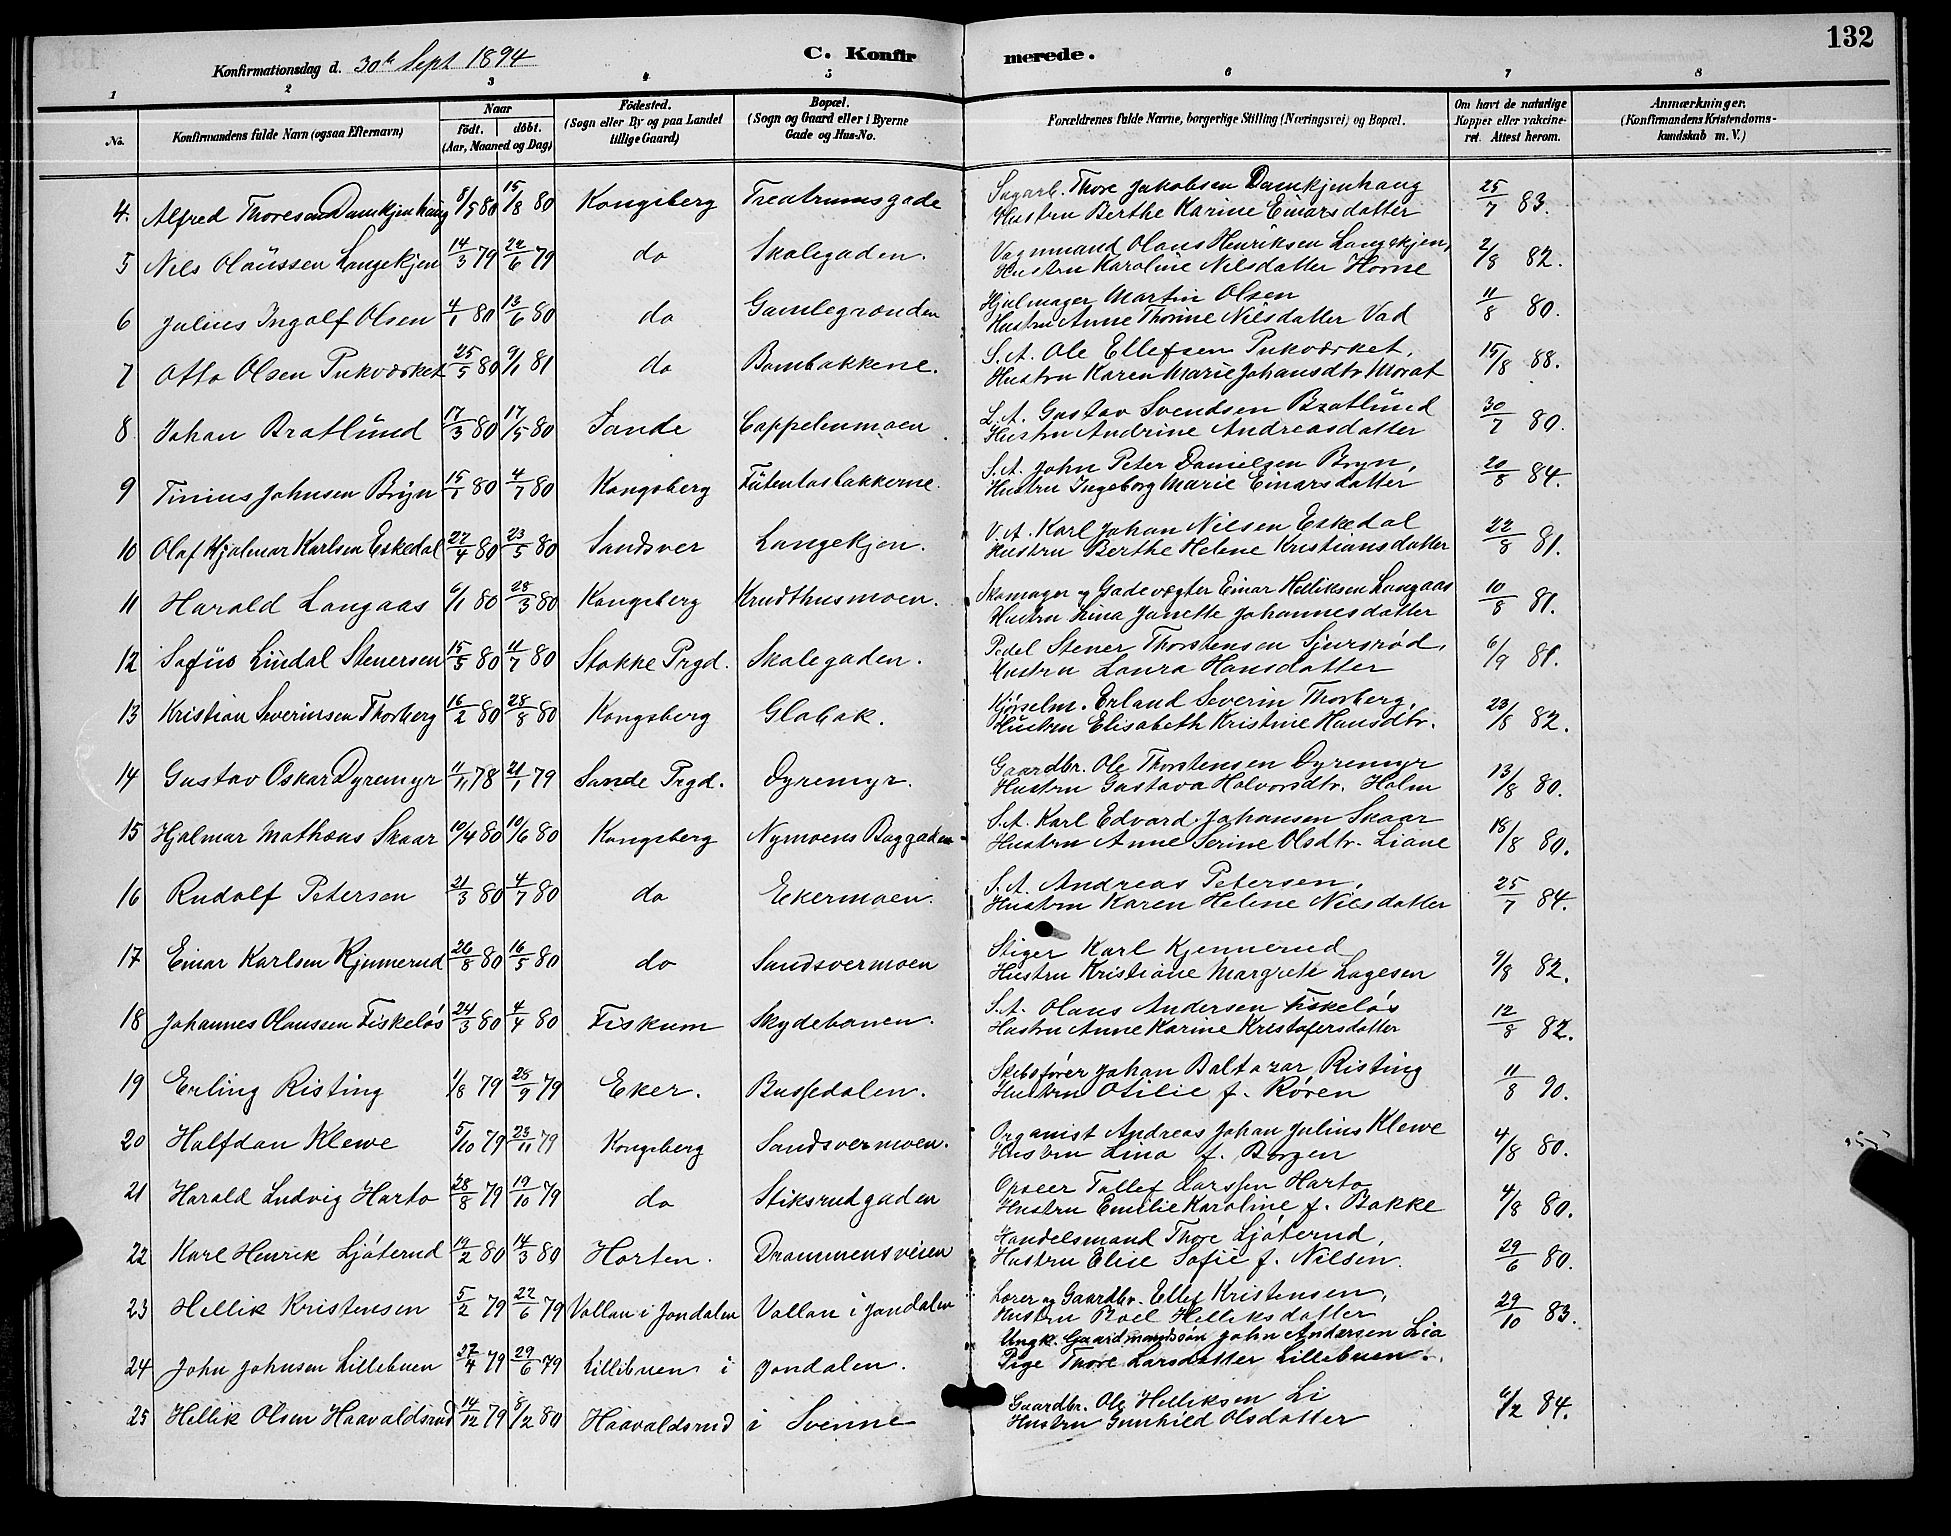 132
Konfirmationsdag d. 30te Sept 1894
C. Konfirmerede.
1 2 3 4 5 6 7 8
No. Konfirmandens fulde Navn (ogsaa Efternavn) Naar født. døbt. (Aar, Maaned og Dag) Fødested. (Sogn eller By og paa Landet tillige Gaard) Bopæl. (Sogn og Gaard eller i Byerne Gade og Hus-No. Forældrenes fulde Navne, borgerlige Stilling (Næringsvei) og Bopæl. Om havt de naturlige Kopper eller vakcineret. Attest herom. Anmærkninger. (Konfirmandens Kristendomskundskab m. V.)
4. Alfred Thoresen Damkjenhaug 8/5 80 15/8 80 Kongsberg Treatrumsgade Sagarb. Thore Jakobsen Damkjenhaug 25/7 83.
Hustru Berthe Karine Einarsdatter
5 Nils Olaüssen Langekjen 14/3 79 22/6 79 do Skolegaden. Vognmand Olaus Henriksen Langekjen, 2/8 82.
Hustru Karoline Nilsdatter Horne
6 Julius Ingolf Olsen 4/1 80 13/6 80 do Gamlegrønden Hjulmager Martin Olsen 11/8 80.
Hustru Anne Thorine Nilsdatter Vad
7 Otto Olsen Pukværket 25/5 80 9/1 81 do Bombakkene. S. A. Ole Ellefsen Pukværket, 15/8 88.
Hustru Karen Marie Johansdtr Morat
8 Johan Bratlünd 17/3 80 17/5 80 Sande Cappelenmoen. L. A. Gustav Svendsen Bratlünd 30/7 80.
Hustru Andrine Andreasdatter
9 Tinius Johnsen Brÿn 15/1 80 4/7 80 Kongsberg Fütenlosbakkerne. S. A. John Peter Danielsen Bryn, 20/8 84.
Hustru Ingeborg Marie Einarsdatter
10 Olaf Hjalmar Karlsen Eskedal 22/4 80 23/5 80 Sandsver Langekjen. V. A. Karl Johan Nilsen Eskedal 22/8 81.
Hustru Berthe Helene Kristiansdatter
11 Harald Langaas 6/1 80 28/3 80 Kongsberg Krudthusmoen. Skomager og Gadevægter Einar Helliksen Langaas 10/8 81.
Hustru Lina Janette Johannesdatter
12 Sofüs Lindal Stenersen 15/5 80 11/7 80 Stokke Prgd. Skolegaden. Pedel Stener Thorstensen Sjursrød, 6/9 81.
Hustru Laura Hansdatter
13 Kristian Severinsen Thorberg 16/2 80 28/8 80 Kongsberg Glabak. Kjørselm. Erland Severin Thorberg, 23/8 82.
Hustru Elisabeth Kristine Hansdtr.
14 Gustav Oskar Dyremyr 11/11 78 21/1 79 Sande Prgd. Dyremyr. Gaardbr. Ole Thorstensen Dyremyr 13/8 80.
Hustru Gustava Halvorsdtr. Holm
15 Hjalmar Mathæus Skaar 10/4 80 10/6 80 Kongsberg Nymoens Baggaden S. A. Karl Edvard Johansen Skaar 18/8 80.
Hustru Anne Serine Olsdtr. Liane
16 Rudolf Petersen 21/3 80 4/7 80 do Ekermoen. S. A. Andreas Petersen, 25/7 84.
Hustru Karen Helene Nilsdatter
17 Einar Karlsen Kjennerud 26/8 80 16/5 80 do Sandsvermoen Stiger Karl Kjennerud 9/8 82.
Hustru Kristiane Margrete Lagesen
18 Johannes Olaussen Fiskeløs 24/3 80 4/4 80 Fiskum Skydebanen. S. A. Olaus Andersen Fiskeløs 12/8 82.
Hustru Anne Karine Kristofersdatter
19 Erling Risting 1/8 79 28/9 79 Eker. Bussedalen. Skibsfører Johan Baltazar Risting 11/8 90.
Hustru Otilie f. Røren
20 Halfdan Klewe 5/10 79 23/11 79 Kongsberg Sandsvermoen. Organist Andreas Johan Julius Klewe 4/8 80.
Hustru Lina f. Borgen
21 Harald Ludvig Harto 28/8 79 19/10 79 do Stiksrudgaden Opseer Tollef Larssen Harto 4/8 80.
Hustru Emilie Karoline f. Bakke
22 Karl Henrik Ljøterud 19/2 80 14/3 80 Horten. Drammensveien Handelsmand Thore Ljøterud, 29/6 80.
Hustru Elise Sofie f. Nilsen.
23 Hellik Kristensen 5/2 79 22/6 79 Vollan i Jondalen Vollan i Jondalen Lærer og Gaardbr. Ellef Kristensen, 29/10 83.
Hustru Roel Helliksdatter
24 John Johnsen Lillebuen 27/4 79 29/6 79 Lillibuen i Jondalen. Ungk. Gaardmandssøn John Andersen Lia
Pige Thore Larsdatter Lillebuen.
25 Hellik Olsen Haavaldsrud 14/12 79 8/2 80 Haavaldsrud i Svenne Gaardbr. Ole Helliksen Li 6/2 84.
Hustru Gunhild Olsdatter